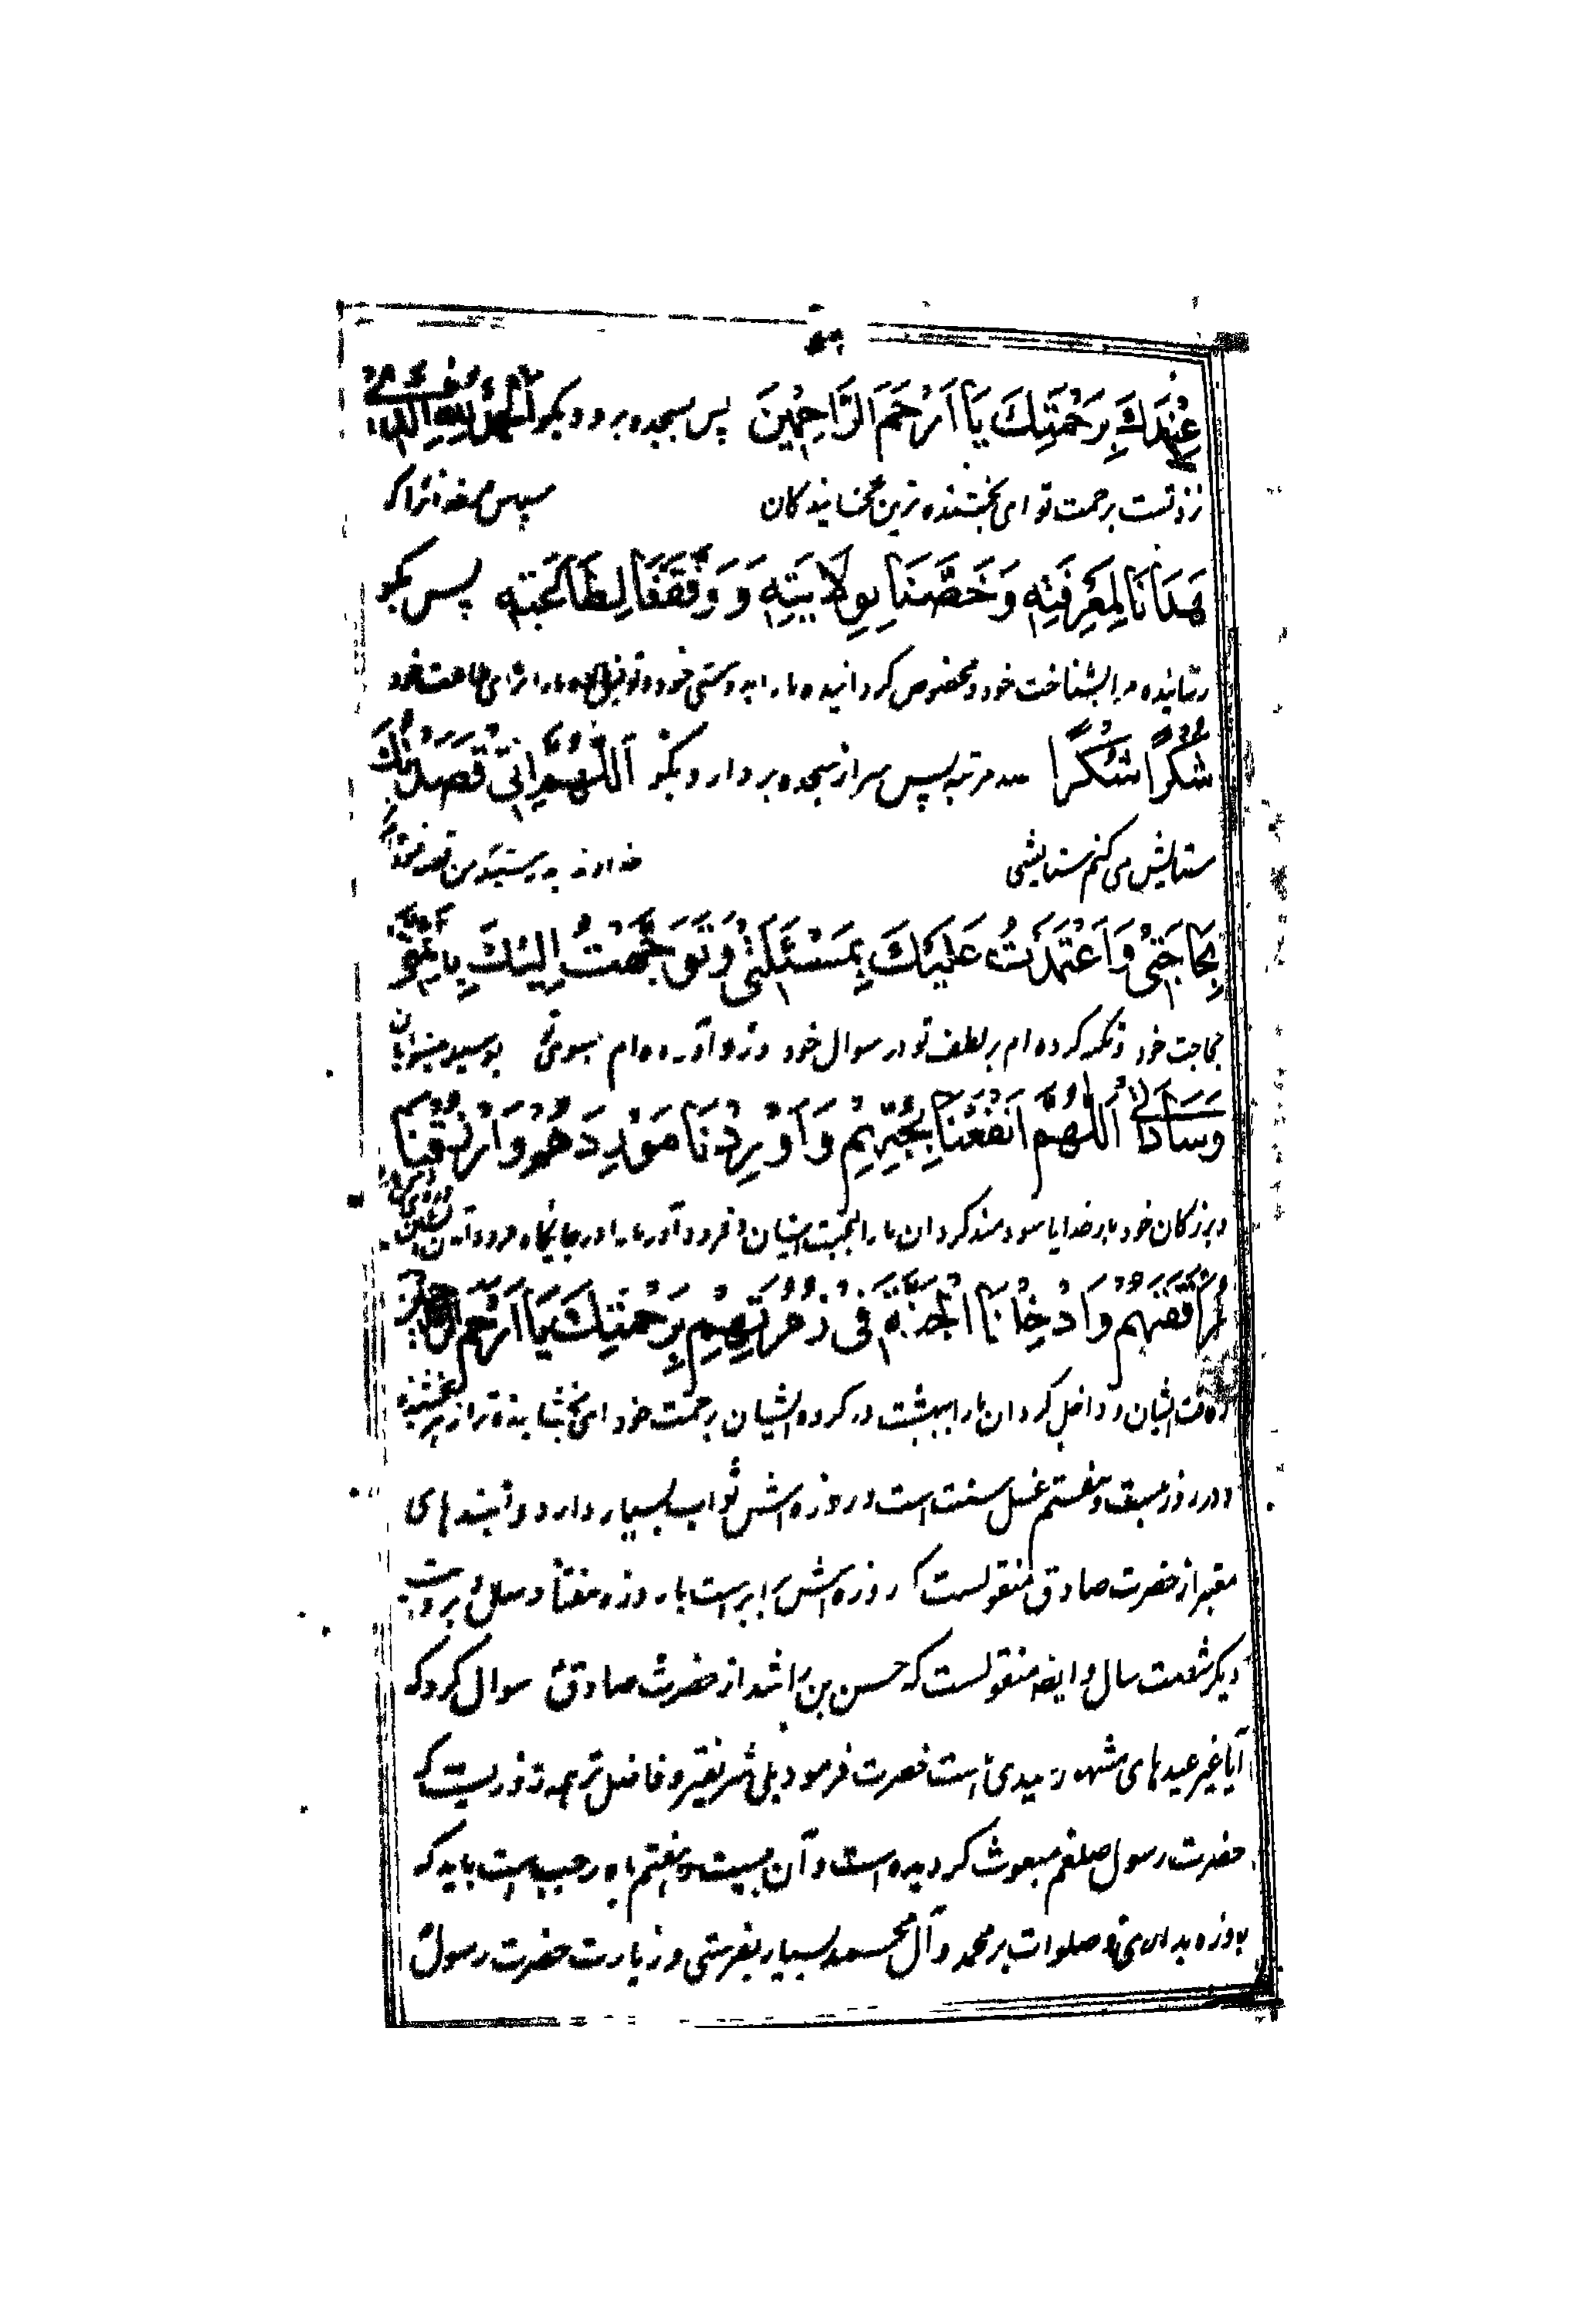 عِنْدَكَ بِرَحْمَتِكَ يَا اَرْحَمَ الرَّاحِمِينَ پس بسجده برو و بگو اَلْحَمْدُ لِلّٰهِ الَّذِي
نزد تست برحمت تو ای بخشنده ترین بخشایندگان سپاس مر خدائرا که
هَدَانَا لِمَعْرِفَتِهِ وَخَصَّنَا بِوِلَايَتِهِ وَوَفَّقَنَا لِطَاعَتِهِ پس بگو
بشناخت خود و مخصوص گردانیده ما را بدوستی خود و توفیق داده ما را برای طاعت خود
شُكْرًا شُكْرًا صد مرتبه پس سر از سجده بردار و بگو اَللّٰهُمَّ اِنِّي قَصَدْتُكَ
ستایش می کنم ستایشی خداوندا بدرستیکه من قصد
بِحَاجَتِي وَاعْتَمَدْتُ عَلَيْكَ بِمَسْئَلَتِي وَتَوَجَّهْتُ اِلَيْكَ بِاَئِمَّتِي
بحاجت خود و تکیه کرده ام بر لطف تو در سوال خود و رو آورده ام بسوی تو بوسیله پیشوایان
وَسَادَاتِي اَللّٰهُمَّ انْفَعْنَا بِحُبِّهِمْ وَاَوْرِدْنَا مَوْرِدَهُمْ وَارْزُقْنَا
و بزرگان خود بار خدایا سودمند گردان ما را بمحبت ایشان و فرود آور ما را در جایگاه فرود آمدن ایشان
مُرَافَقَتَهُمْ وَاَدْخِلْنَا الْجَنَّةَ فِي زُمْرَتِهِمْ بِرَحْمَتِكَ يَا اَرْحَمَ الرَّاحِمِينَ
ایشان و داخل گردان ما را ببهشت در گروه ایشان برحمت خود ای بخشاینده تر از هر بخشنده
و در روز بیست و هفتم غسل سنت است و روزه اش ثواب بسیار دارد و بسندهای
معتبر از حضرت صادق منقولست که روزه اش برابر است با روزه هفتاد سال و بروایت
دیگر شصت سال و ایضا منقولست که حسن بن راشد از حضرت صادق سوال کرد که
آیا غیر عیدهای مشهور عیدی است حضرت فرمود بلی شریفتر و فاضل تر همه روزیست که
حضرت رسول صلعم مبعوث گردیده است و آن بیست و هفتم ماه رجب است باید که
روزه بداری و صلوات بر محمد و آل محمد بسیار بفرستی و زیارت حضرت رسول